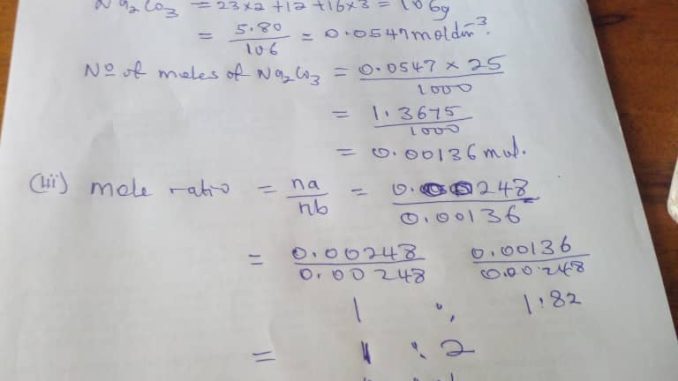 Na2Co3 = 23x2 +12 +16x3 = 106g
= 5.80/106 = 0.0547 moldm-3.
No of moles of Na2Co3 = 0.0547 x 25/1000
= 1.3675/1000
= 0.00136 mol.
(iii) mole ratio = na/nb = 0.00248/0.00136
= 0.00248/0.00248 0.00136/0.00248
1 : 1.82
= 1 : 2